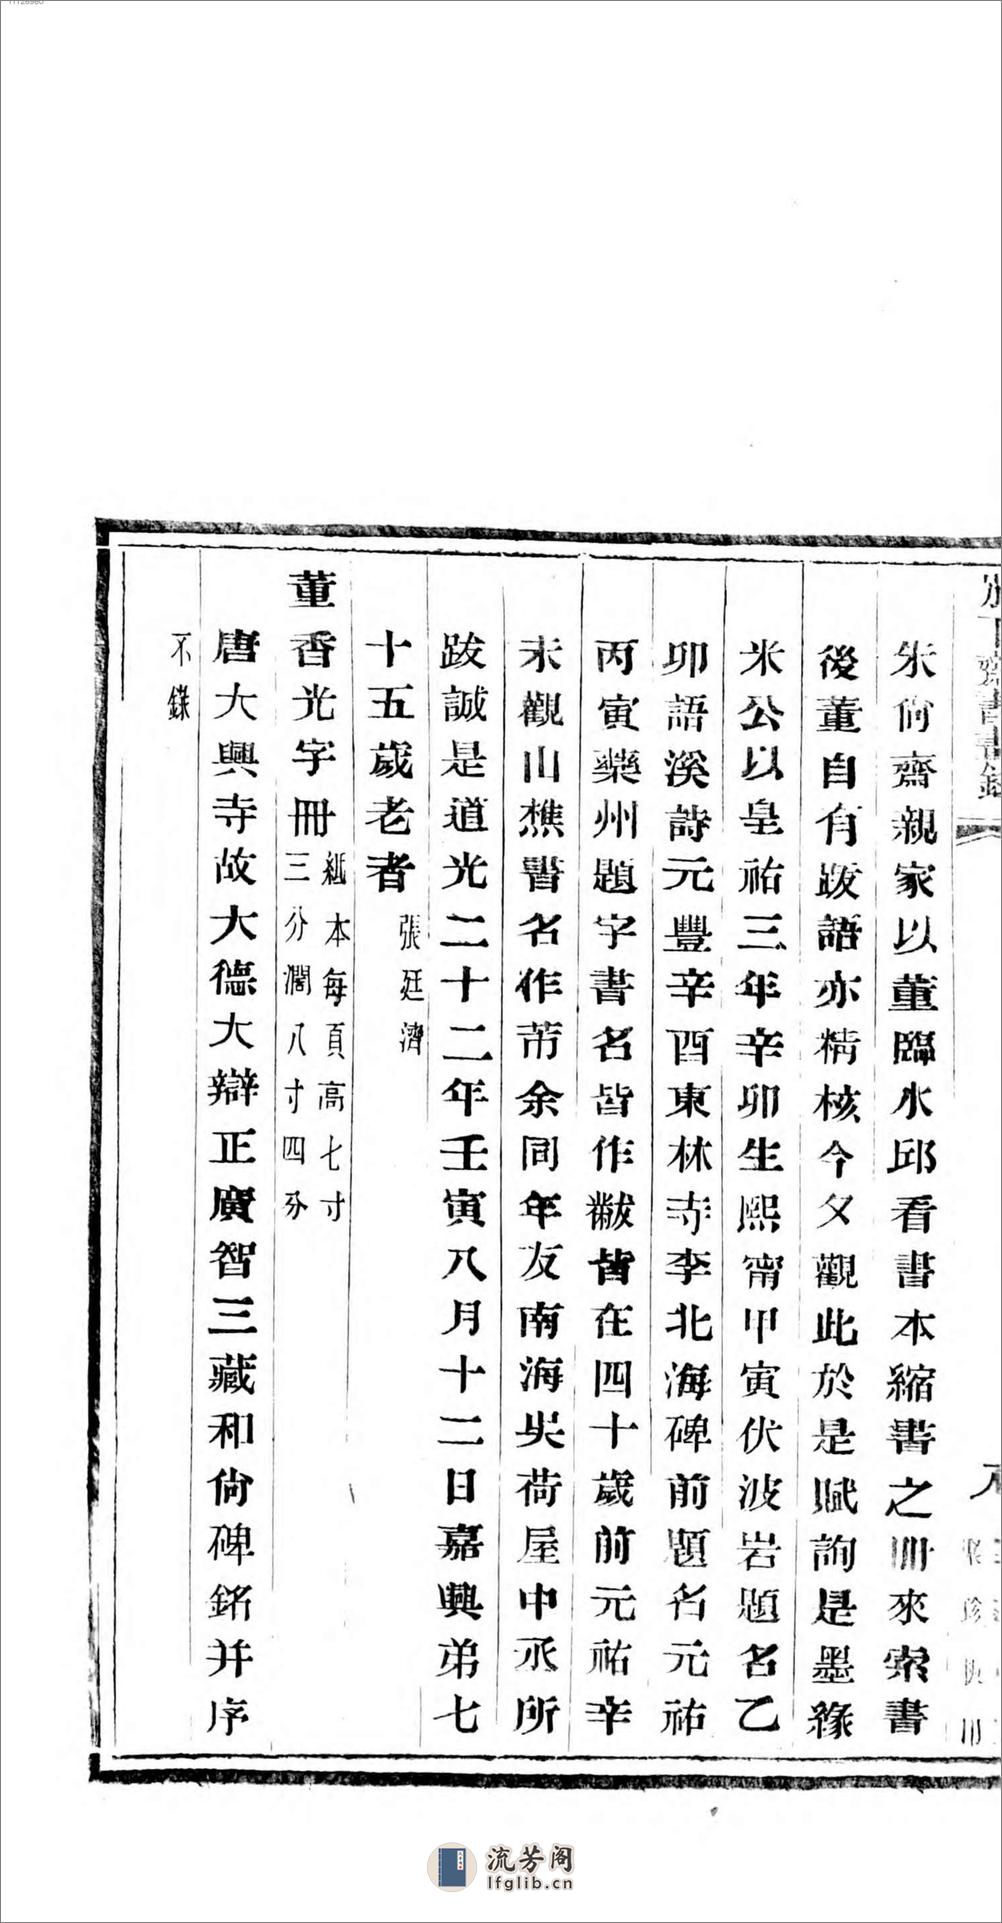 朱尙齋親家以董臨水邱看書本縮書之冊來索書
後董自有跋語亦精核今夕觀此於是賦詢是墨緣
米公以皇祐三年辛卯生熙甯甲寅伏波岩題名乙
卯語溪詩元豐辛酉東林寺李北海碑前題名元祐
丙寅藥州題字書名皆作黻皆在四十歲前元祐辛
未觀山樵書名作芾余同年友南海吳荷屋中丞所
跋誠是道光二十二年壬寅八月十二日嘉興弟七
十五歲老者 張廷濟
董香光字冊 紙本每頁高七寸三分濶八寸四分
唐大興寺故大德大辯正廣智三藏和尙碑銘并序
不錄
流芳阁
lfglib.cn